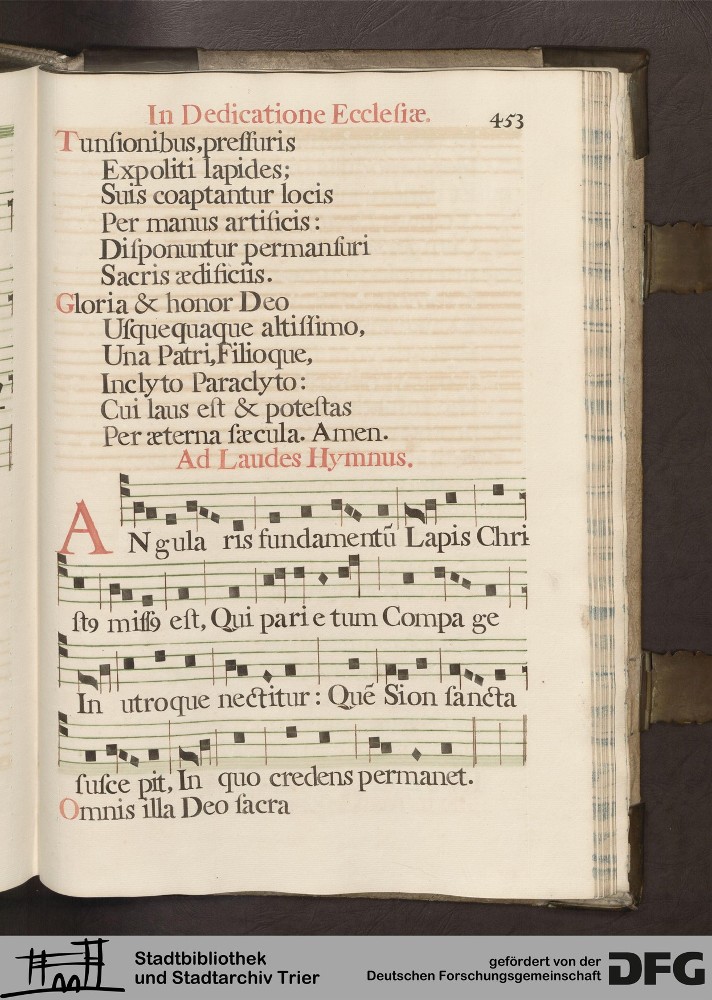 In Dedicatione Eccleſiæ.
453
Tunſionibus, preſſuris
Expoliti lapides;
Suis coaptantur locis
Per manus artificis:
Diſponuntur permanſuri
Sacris ædificiis.
Gloria & honor Deo
Uſquequaque altiſſimo,
Una Patri, Filioque,
Inclyto Paraclyto:
Cui laus eſt & poteſtas
Per æterna ſæcula. Amen.
Ad Laudes Hymnus.
ANgula ris fundamentū Lapis Chri
ſtꝯ miſſꝯ eſt, Qui pari e tum Compa ge
In utroque nectitur: Quē Sion ſancta
ſuſce pit, In quo credens permanet.
Omnis illa Deo ſacra
Stadtbibliothek
und Stadtarchiv Trier
gefördert von der
Deutschen Forschungsgemeinschaft
DFG